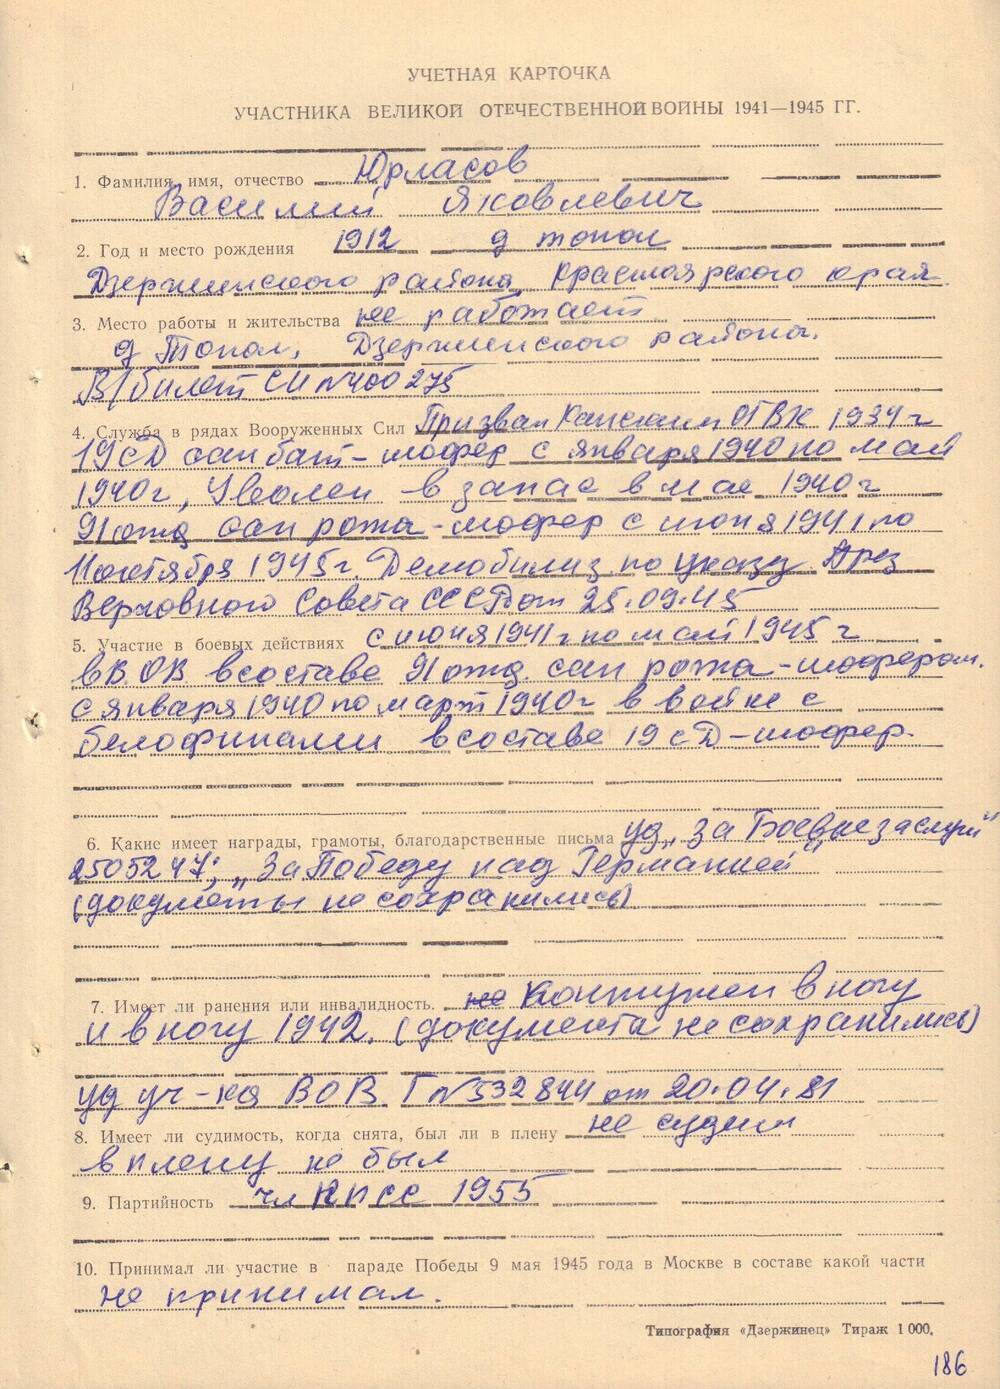 УЧЕТНАЯ КАРТОЧКА
УЧАСТНИКА ВЕЛИКОЙ ОТЕЧЕСТВЕННОЙ ВОЙНЫ 1941—1945 ГГ.
1. Фамилия, имя, отчество Юрласов
Василий Яковлевич
2. Год и место рождения 1912 д Топол
Дзержинского района, Красноярского края
3. Место работы и жительства не работает
д Топол, Дзержинского района.
В/билет СИ №400275
4. Служба в рядах Вооруженных Сил Призван Канским ОГВК 1934 г
19 сД сан бат - шофер с января 1940 по май
1940 г, Уволен в запас в мае 1940 г
91 сан рота - шофер с июня 1941 по
11 октября 1945 г Демобилиз по указу През
Верховного Совета СССР от 25.09.45
5. Участие в боевых действиях с июня 1941 г по май 1945 г
в В.О.В. в составе 91 сан рота - шофером.
с января 1940 по март 1940 г в войне с
белофинами в составе 19 сД - шофер.
6. Какие имеет награды, грамоты, благодарственные письма уд „За Боевые заслуги"
2505247; „За Победу над Германией"
(документы не сохранились)
7. Имеет ли ранения или инвалидность. не Контужен в ногу
и в ногу 1942. (документа не сохранились)
уд уч-ка ВОВ Г №532844 от 20.04.81
8. Имеет ли судимость, когда снята, был ли в плену не судим
в плену не был
9. Партийность чл КПСС 1955
10. Принимал ли участие в параде Победы 9 мая 1945 года в Москве в составе какой части
не принимал.
Типография «Дзержинец» Тираж 1 000.
186